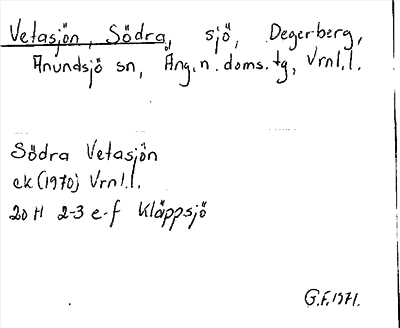 Vetasjön, Södra, sjö, Degerberg,
Anundsjö sn, Ång.n.doms.tg, Vrnl.l.
Södra Vetasjön
ek (1970) Vrnl.l.
20 H 2-3 e-f Kläppsjö
G.F. 1971.